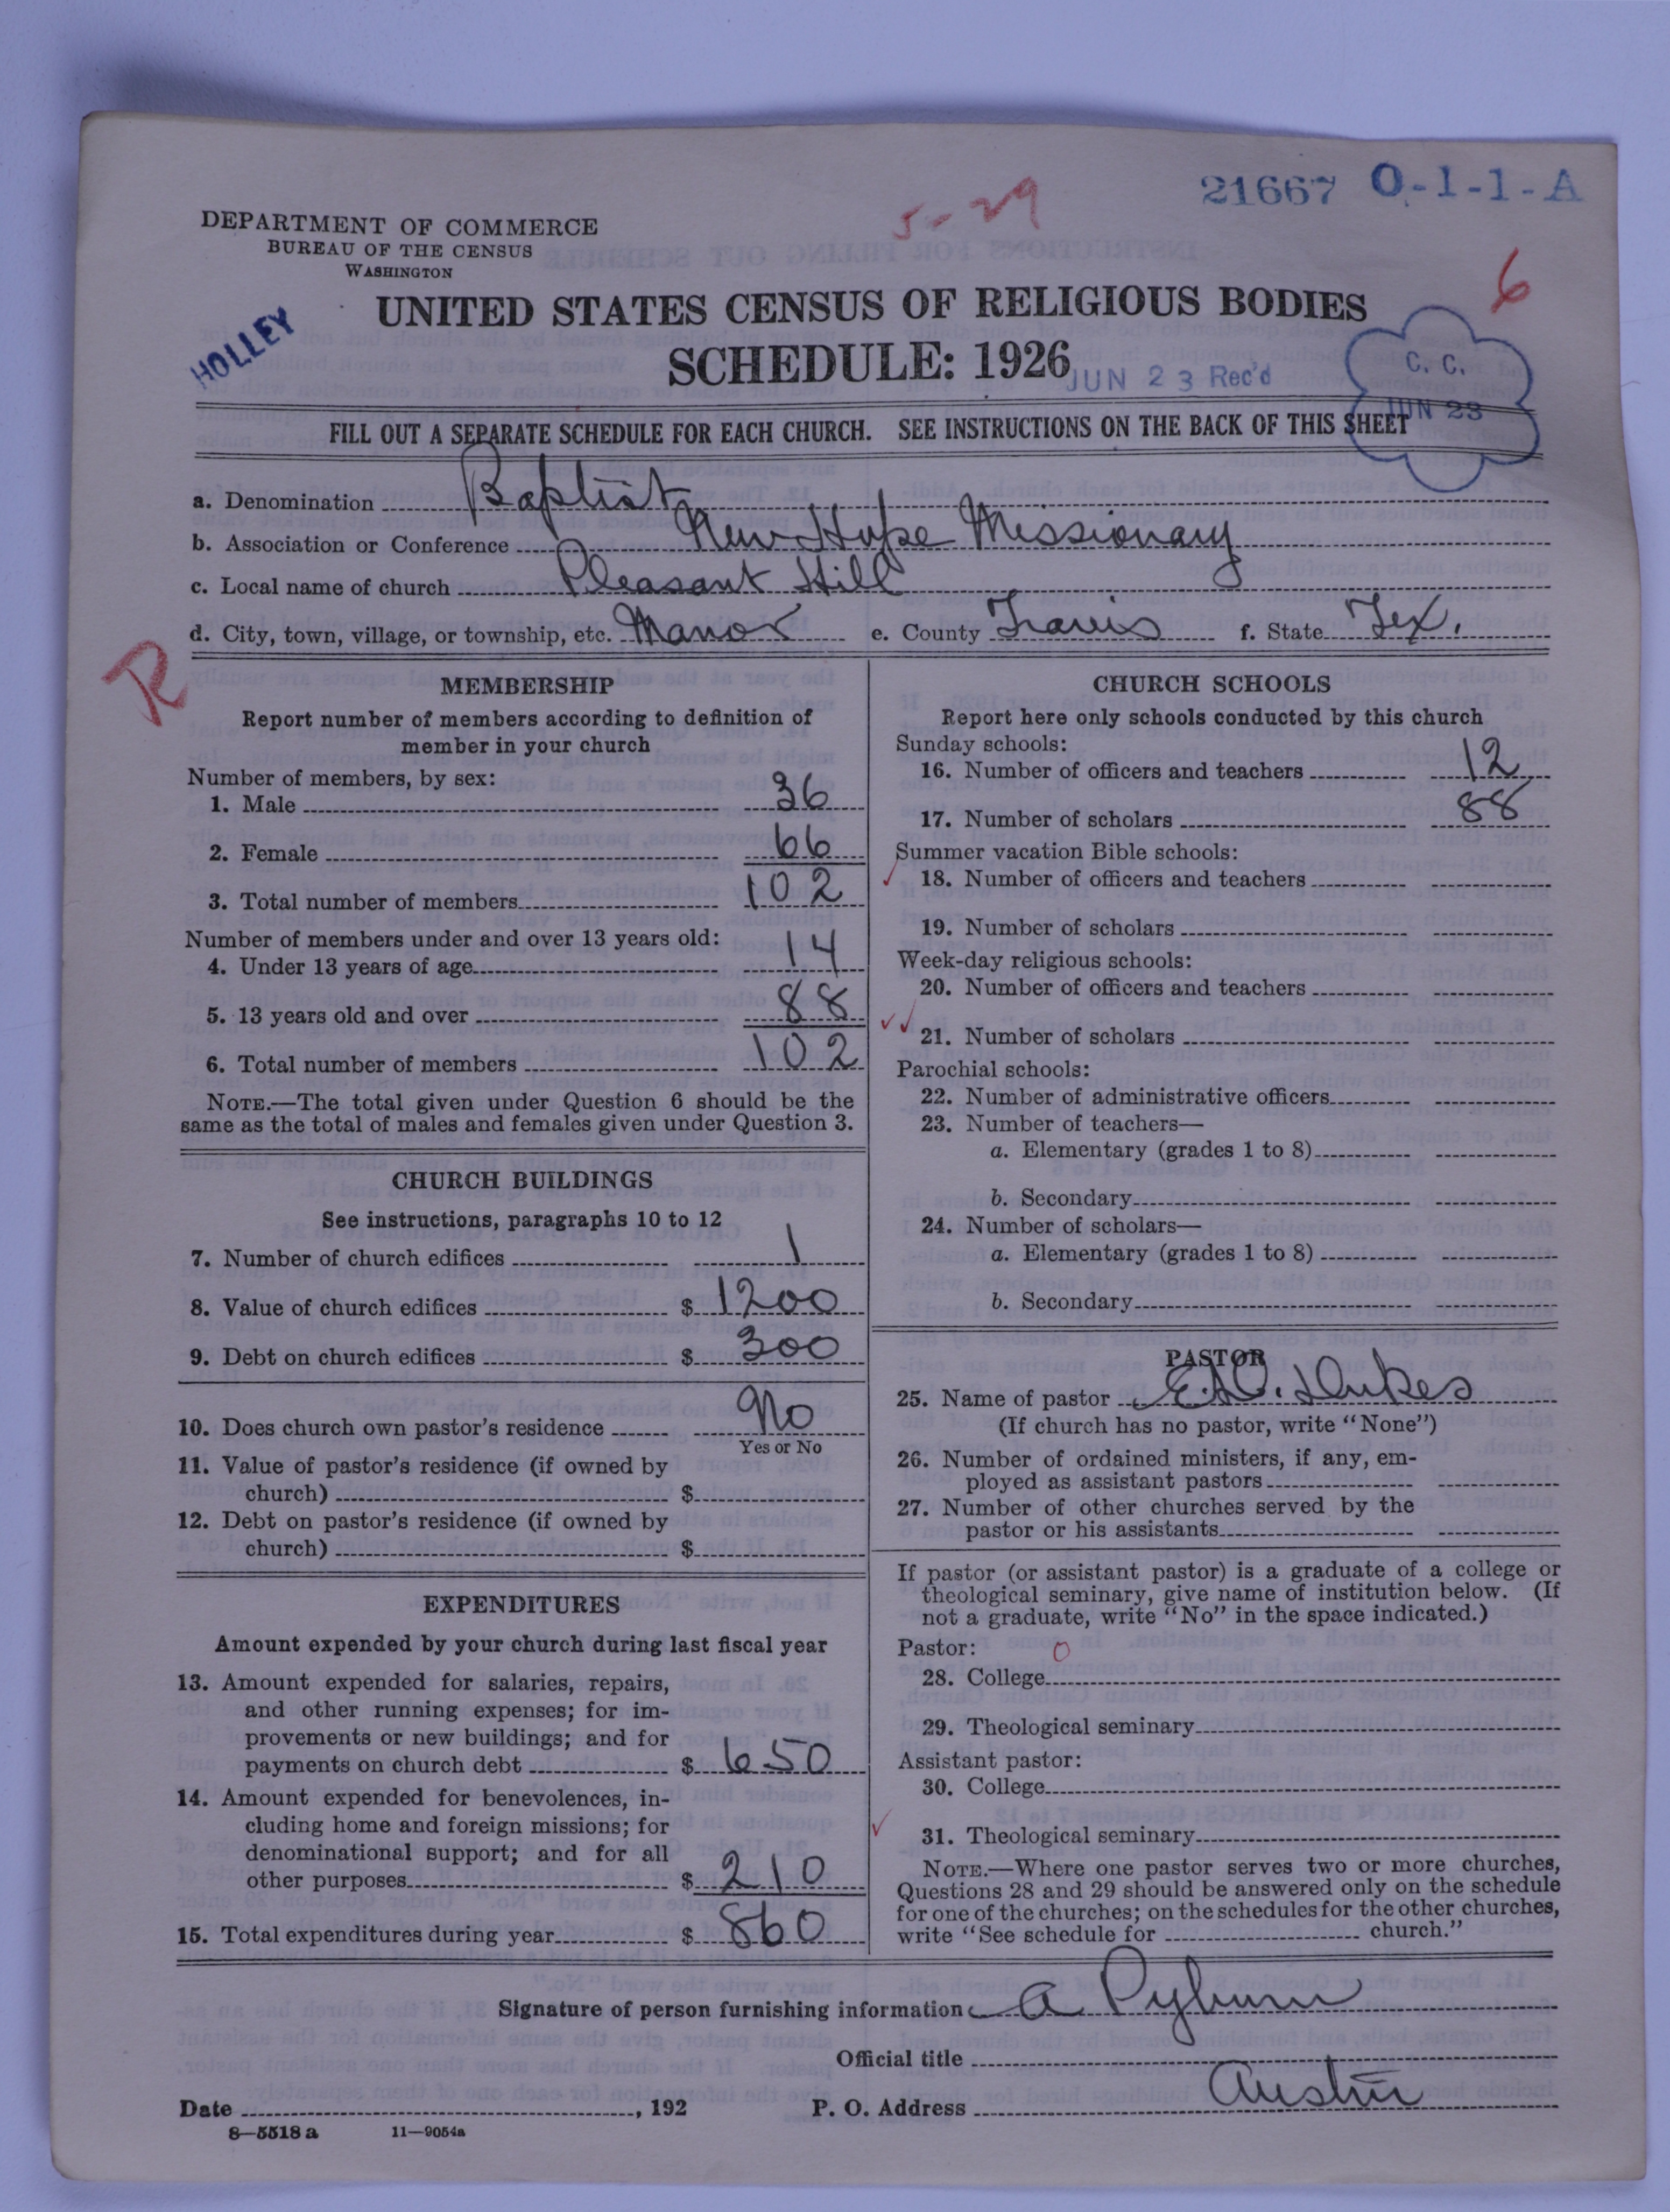 21667 O-1-1-A
5-29
DEPARTMENT OF COMMERCE
BUREAU OF THE CENSUS
WASHINGTON
6
HOLLEY
UNITED STATES CENSUS OF RELIGIOUS BODIES
SCHEDULE: 1926
JUN 23 Rec'd
C. C.
JUN 23
FILL OUT A SEPARATE SCHEDULE FOR EACH CHURCH. SEE INSTRUCTIONS ON THE BACK OF THIS SHEET
a. Denomination Baptist
b. Association or Conference New Hope Missionary
c. Local name of church Pleasant Hill
d. City, town, village, or township, etc. Manor e. County Travis f. State Tex.
R
MEMBERSHIP
Report number of members according to definition of
member in your church
Number of members, by sex:
1. Male 36
2. Female 66
3. Total number of members 102
Number of members under and over 13 years old:
4. Under 13 years of age 14
5. 13 years old and over 88
6. Total number of members 102
NOTE.—The total given under Question 6 should be the
same as the total of males and females given under Question 3.
CHURCH BUILDINGS
See instructions, paragraphs 10 to 12
7. Number of church edifices 1
8. Value of church edifices $ 1200
9. Debt on church edifices $ 300
10. Does church own pastor's residence No
Yes or No
11. Value of pastor's residence (if owned by
church) $
12. Debt on pastor's residence (if owned by
church) $
EXPENDITURES
Amount expended by your church during last fiscal year
13. Amount expended for salaries, repairs,
and other running expenses; for im-
provements or new buildings; and for
payments on church debt $ 650
14. Amount expended for benevolences, in-
cluding home and foreign missions; for
denominational support; and for all
other purposes $ 210
15. Total expenditures during year $ 860
CHURCH SCHOOLS
Report here only schools conducted by this church
Sunday schools:
16. Number of officers and teachers 12
17. Number of scholars 88
Summer vacation Bible schools:
18. Number of officers and teachers
19. Number of scholars
Week-day religious schools:
20. Number of officers and teachers
21. Number of scholars
Parochial schools:
22. Number of administrative officers
23. Number of teachers—
a. Elementary (grades 1 to 8)
b. Secondary
24. Number of scholars—
a. Elementary (grades 1 to 8)
b. Secondary
PASTOR
25. Name of pastor Dukes
(If church has no pastor, write "None")
26. Number of ordained ministers, if any, em-
ployed as assistant pastors
27. Number of other churches served by the
pastor or his assistants
If pastor (or assistant pastor) is a graduate of a college or
theological seminary, give name of institution below. (If
not a graduate, write "No" in the space indicated.)
Pastor: 0
28. College
29. Theological seminary
Assistant pastor:
30. College
31. Theological seminary
NOTE.—Where one pastor serves two or more churches,
Questions 28 and 29 should be answered only on the schedule
for one of the churches; on the schedules for the other churches,
write "See schedule for church."
Signature of person furnishing information A Pyburn
Official title
Date , 192 P. O. Address Austin
8—5518 a 11—9054a